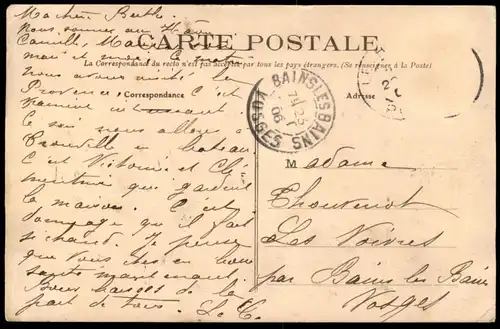 Ma chère Berthe
Nous sommes au Havre
Camille, Ma
CARTE POSTALE
La Correspondance du recto n'est pas acceptée par tous les pays étrangers. (Se renseigner à la Poste)
nous avons visité le
Provence, c'est
Correspondance
Adresse
BAINS-LES-BAINS
VOSGES
Ce soir nous allons à
Trouville en bateau
C'est Victorine et Clé-
mentine qui gardent
la maison. C'est
dommage qu'il fait
si chaud. Je pense
que vous êtes en bonne
santé maintenant.
Bons baisers de la
part de tous. L. C.
Madame
Thouvenot
Les Voivres
par Bains les Bains
Vosges